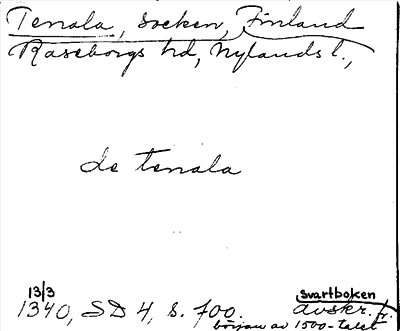 Tenala, socken, Finland
Raseborgs hd, Nylands l.,
de tenala
13/3 svartboken
1340, SD 4, s. 700. avskr. fr.
början av 1500-talet